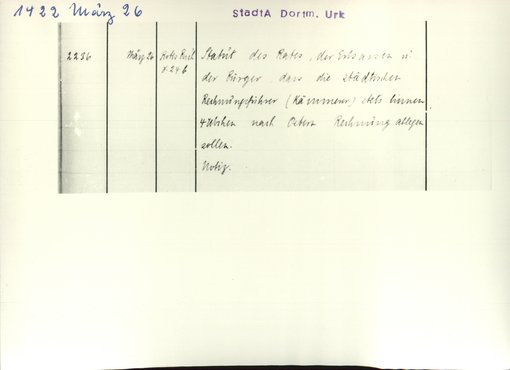 1422 März 26
StadtA Dortm. Urk
2236 März 26 Rotes Buch Statut des Rates, der Erbsassen u
f. 246 der Bürger, dass die städtischen
Rechnungsführer (Kämmerer) stets binnen
4 Wochen nach Ostern Rechnung ablegen
sollen.
Notiz.